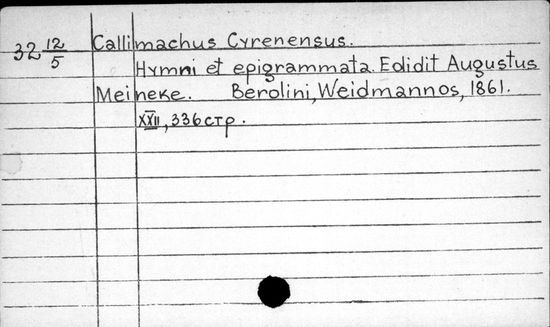 32 12/5 Callimachus Cyrenensus.
Hymni et epigrammata. Edidit Augustus
Meineke. Berolini, Weidmannos, 1861.
XXII, 336 стр.